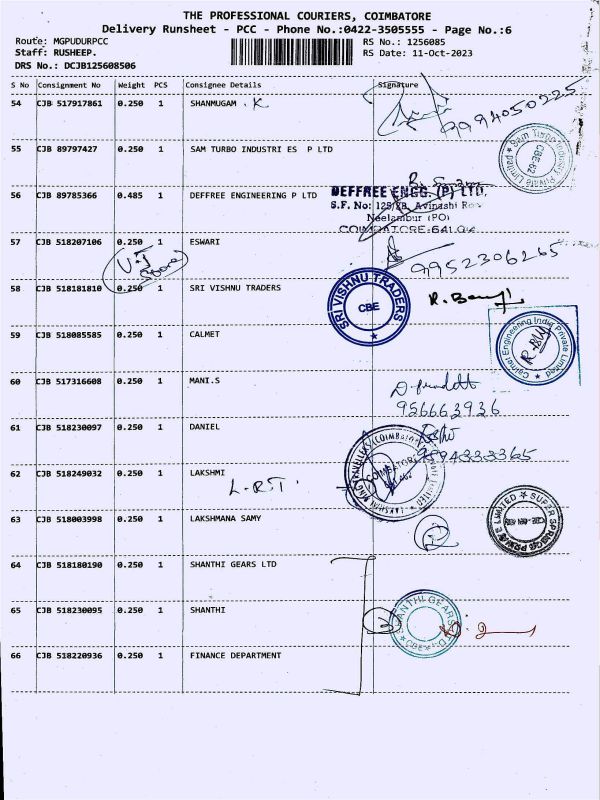 THE PROFESSIONAL COURIERS, COIMBATORE
Delivery Runsheet - PCC - Phone No.:0422-3505555 - Page No.:6
Route: MGPUDURPCC RS No.: 1256085
Staff: RUSHEEP. RS Date: 11-Oct-2023
DRS No.: DCJB125608506
S No Consignment No Weight PCS Consignee Details Signature
54 CJB 517917861 0.250 1 SHANMUGAM . K
9994050225
55 CJB 89797427 0.250 1 SAM TURBO INDUSTRI ES P LTD
Sam Turbo Industry Private Limited CBE-62
56 CJB 89785366 0.485 1 DEFFREE ENGINEERING P LTD
DEFFREE ENGG. (P) LTD.
S.F. No: 125/2B, Avinashi Ro
Neelambur (PO)
COIMBATORE-641
57 CJB 518207106 0.250 1 ESWARI
9952306265
58 CJB 518181810 0.250 1 SRI VISHNU TRADERS
SRI VISHNU TRADERS CBE
59 CJB 518085585 0.250 1 CALMET
Calmet Engineering India Private Limited
60 CJB 517316608 0.250 1 MANI.S
956663936
61 CJB 518230097 0.250 1 DANIEL
62 CJB 518249032 0.250 1 LAKSHMI
L.R.T.
63 CJB 518003998 0.250 1 LAKSHMANA SAMY
SUPER SPRINGS PRIVATE LIMITED
64 CJB 518180190 0.250 1 SHANTHI GEARS LTD
65 CJB 518230095 0.250 1 SHANTHI
SHANTHI GEARS LTD. CBE
66 CJB 518220936 0.250 1 FINANCE DEPARTMENT